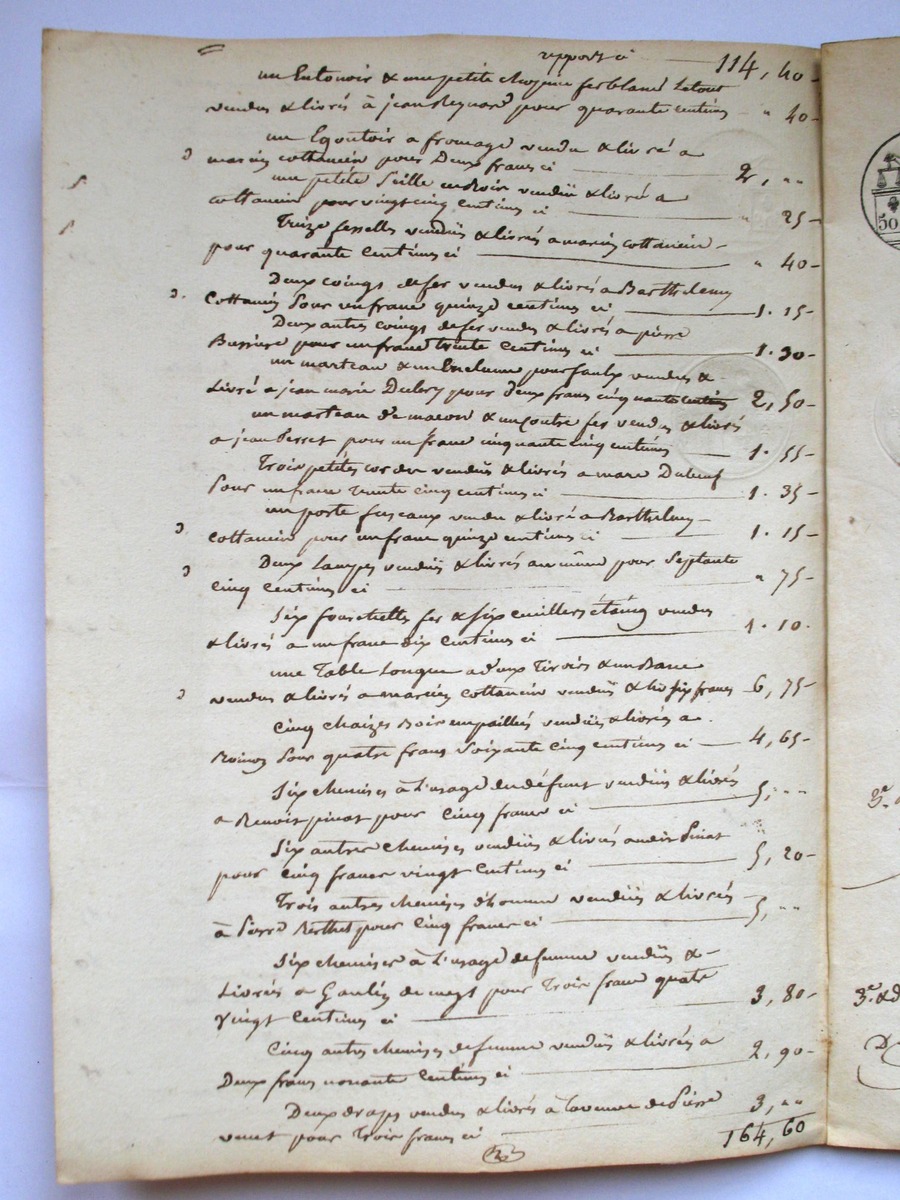 report ci 114, 40
un Entonoir & une petite ferblanc Letout
vendus & livrés à jean pour quarante centimes " 40
un Egoutoir a fromage vendu & livré a
marcin cottancin pour Deux francs ci 2, ""
une petite Seille en Bois vendüe & livrée a
cottancin pour vingt cinq centimes ci " 25
Treize fesselles vendües & livrées a marcin cottancin
pour quarante centimes ci " 40
Deux coings de fer vendus & livrés a Barthelemy
Cottancin pour un franc quinze centimes ci 1. 15
Deux autres coings de fer vendus & livrés a pierre
Bussiere pour un franc trente centimes ci 1. 30
un marteau & un Enclume pour faulx vendus &
Livré a jean marie pour deux francs cinquante centimes 2, 50
un marteau de macon & un coutre fer vendus & livrés
a jean Perret pour un franc cinquante cinq centimes 1. 55
Trois petites cordes vendües & livrées a marc Dubeuf
pour un franc trente cinq centimes ci 1. 35
un porte fuseaux vendu & livré a Barthelemy
cottancin pour un franc quinze centimes ci 1. 15
Deux Lampes vendües & livrés au même pour Septante
cinq centimes ci " 75
Six fourchettes fer & six cuillers étaing vendus
& livrés a un franc dix centimes ci 1. 10
une Table Longue a deux Tiroirs & un Banc
vendus & livrés a marcin cottancin vendüs & six francs 6, 75
Cinq chaizes Bois empaillées vendües & livrées a
pour quatre francs Soixante cinq centimes ci 4, 65
Six chemises à L'usage du défunt vendües & livrées
a Benoit pinat pour cinq francs ci 5, ""
Six autres chemises vendües & livrées audit Pinat
pour cinq francs vingt centimes ci 5, 20
Trois autres chemises d'homme vendües & livrées
à Pierre Berthet pour cinq francs ci 5, ""
Six chemises à L'usage de femme vendües &
Livrées a pour Trois francs quatre
vingt centimes ci 3, 80
Cinq autres chemises de femme vendües & livrées a
Deux francs nonante centimes ci 2, 90
Deux draps vendus & livrés à la veuve de Pierre
pour Trois francs ci 3, ""
164, 60
50
3e
3e & d